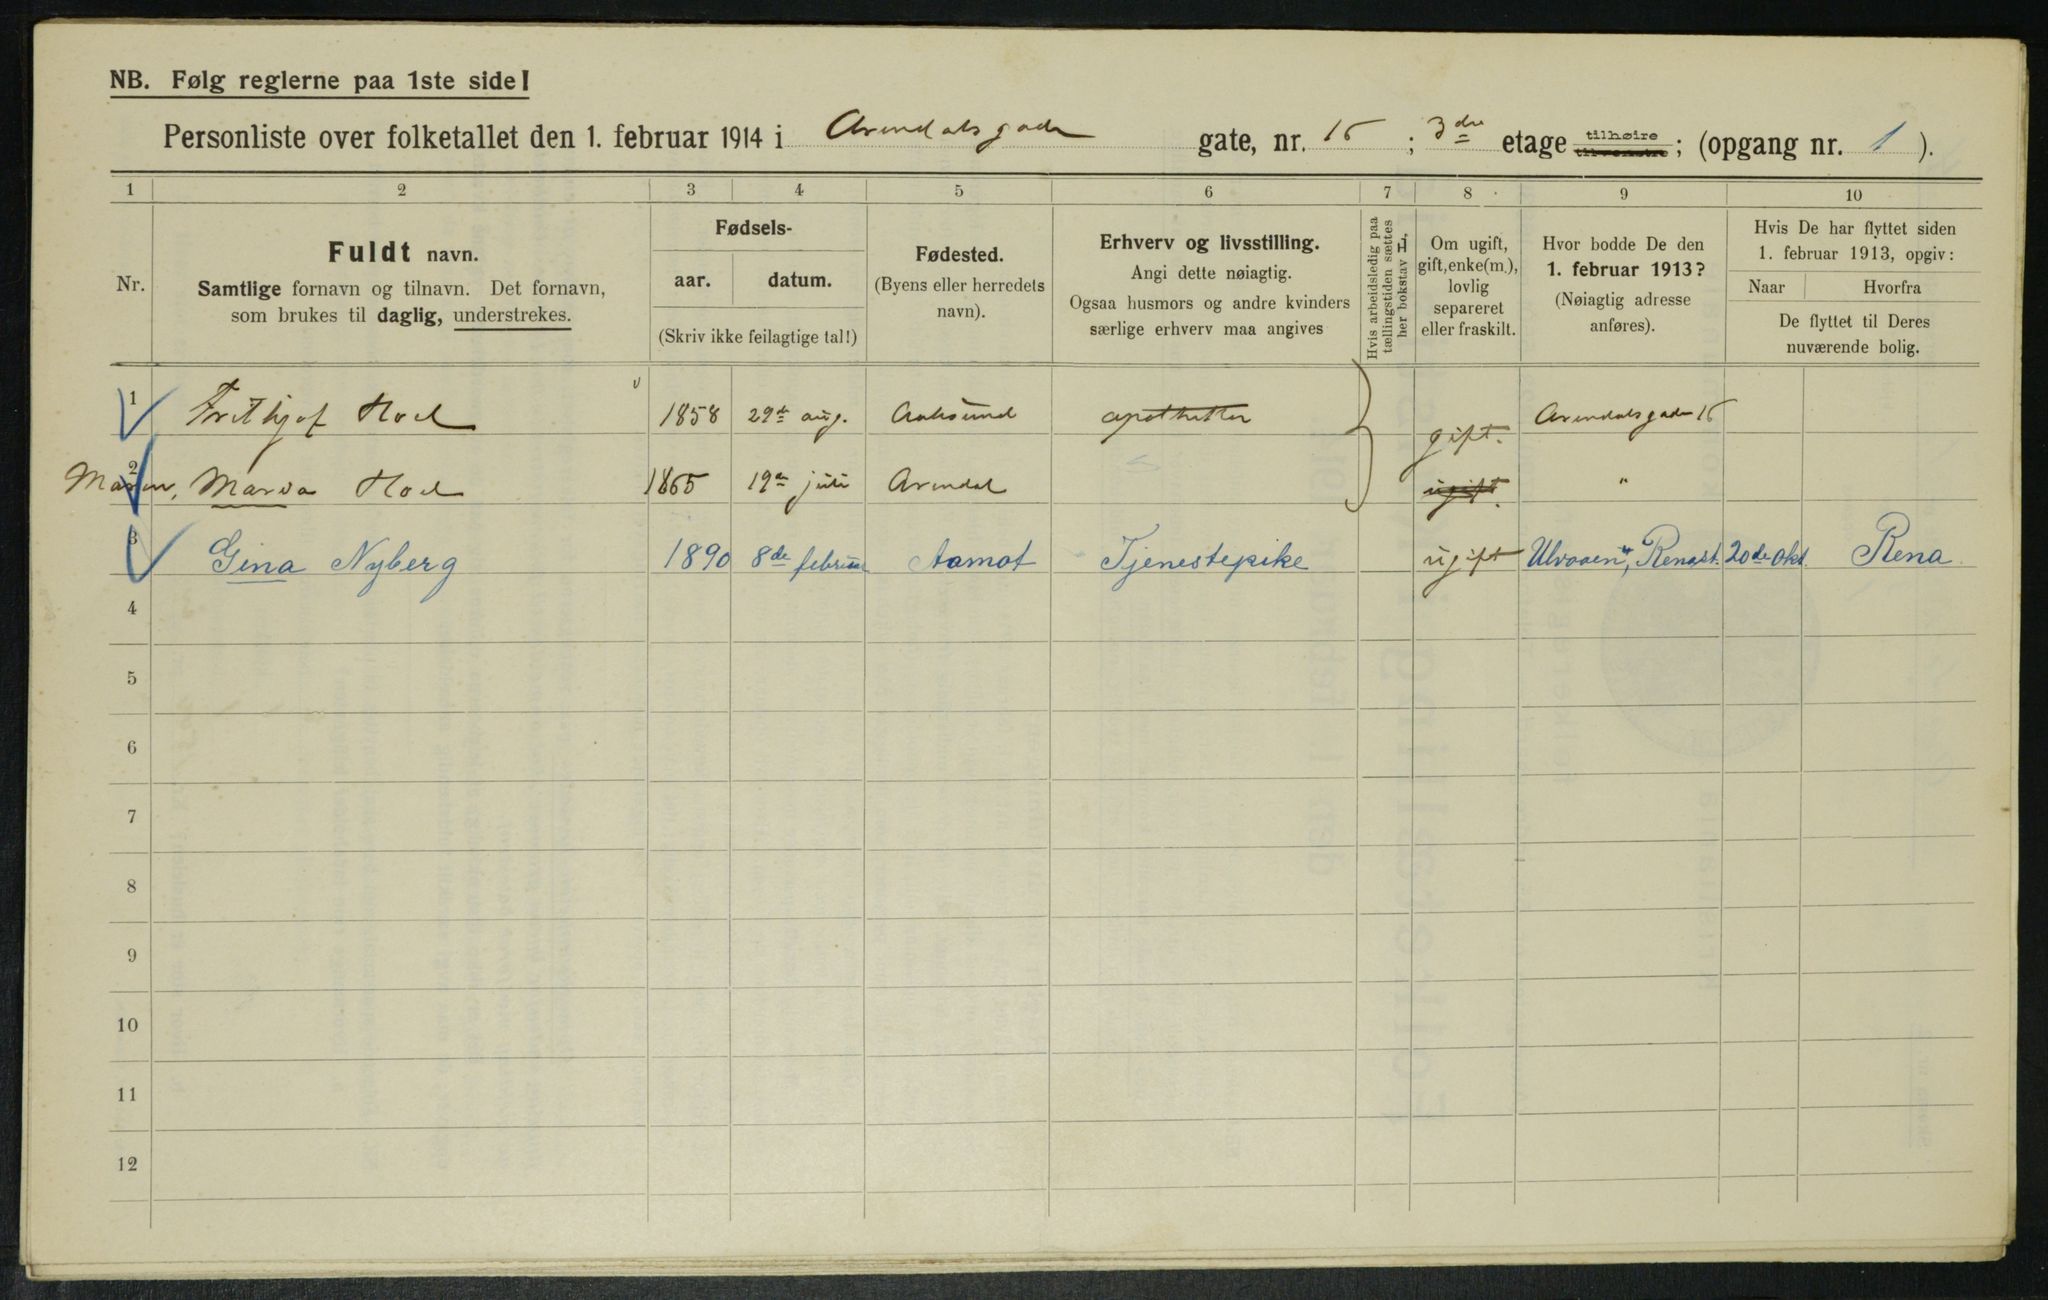 NB. Følg reglerne paa 1ste side!
Personliste over folketallet den 1. februar 1914 i Arendalsgade gate, nr. 15 ; 3dre etage tilhøire tilvenstre ; (opgang nr. 1 ).
1 2 3 4 5 6 7 8 9 10
Nr.
Fuldt navn.
Samtlige fornavn og tilnavn. Det fornavn,
som brukes til daglig, understrekes.
Fødsels-
aar. datum.
(Skriv ikke feilagtige tal!)
Fødested.
(Byens eller herredets
navn).
Erhverv og livsstilling.
Angi dette nøiagtig.
Ogsaa husmors og andre kvinders
særlige erhverv maa angives
Hvis arbeidsledig paa
tællingstiden sættes
her bokstav L.
Om ugift,
gift, enke(m.),
lovlig
separeret
eller fraskilt.
Hvor bodde De den
1. februar 1913?
(Nøiagtig adresse
anføres).
Hvis De har flyttet siden
1. februar 1913, opgiv:
Naar Hvorfra
De flyttet til Deres
nuværende bolig.
1 Frithjof Hoel 1858 29de aug. Aalesund apotheker gift. Arendalsgade 15
2 Maren, Marva Hoel 1865 19de juli Arendal ugift. "
3 Gina Nyberg 1890 8de februar Aamot Tjenestepike ugift Ulvaaen, Renast. 20de okt. Rena
4
5
6
7
8
9
10
11
12